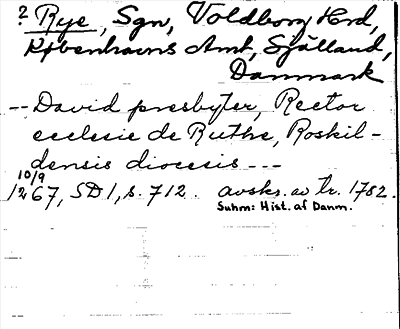 ? Rye, Sgn, Voldborg Hrd,
Københavns Amt, Själland,
Danmark
-- David presbyter, Rector
ecclesie de Ruthe, Roskil-
densis diocesis ---
10/9
1267, SD1, s. 712. avskr. av tr. 1782.
Suhm: Hist. af Danm.